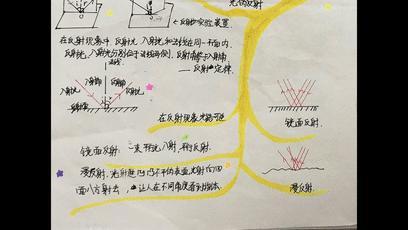 光的反射
←反射实验装置.
在反射现象中 反射光、入射光和法线在同一平面内.
反射光、入射光分别位于法线两侧. 反射角等于入射角
——反射定律.
法线
入射角 反射角
入射光 反射光
在反射现象光路可逆
镜面反射
镜面反射: 一束平行光入射, 平行反射.
漫反射. 光射进凹凸不平的表面光射向四
面八方射去, 让人在不同角度看到物体.
漫反射.